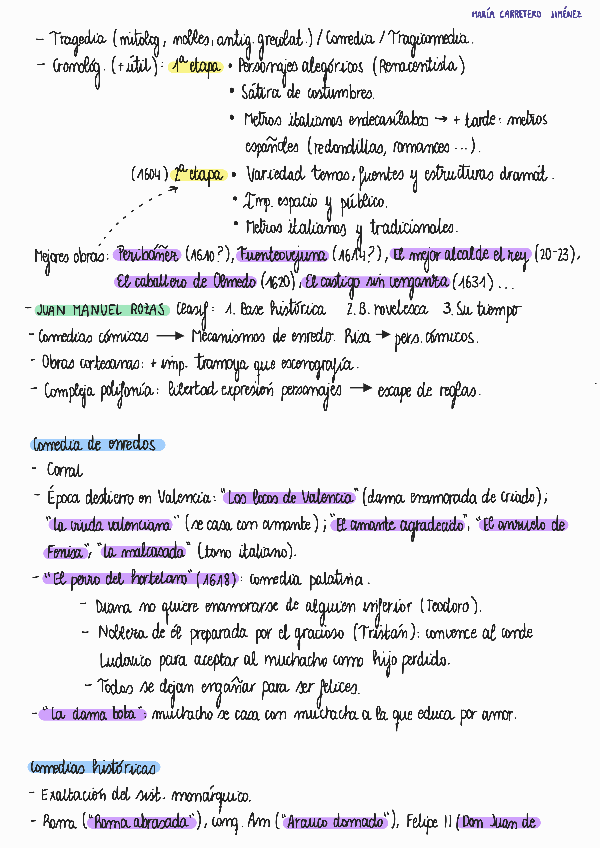 MARÍA CARRETERO JIMÉNEZ
- Tragedia (mitolog, nobles, antig. grecolat.) / Comedia / Tragicomedia.
- Cronológ. (+ útil): 1ª etapa • Personajes alegóricos (Renacentista)
• Sátira de costumbres.
• Metros italianos endecasílabos → + tarde: metros
españoles (redondillas, romances ...).
(1604) 2ª etapa • Variedad temas, fuentes y estructuras dramát.
• Imp. espacio y público.
• Metros italianos y tradicionales.
Mejores obras: Peribáñez (1610?), Fuenteovejuna (1614?), El mejor alcalde el rey (20-23),
El caballero de Olmedo (1620), El castigo sin venganza (1631) ...
- JUAN MANUEL ROZAS Clasif: 1. Base histórica 2. B. novelesca 3. Su tiempo
- Comedias cómicas → Mecanismos de enredo. Risa → pers. cómicos.
- Obras cortesanas: + imp. tramoya que escenografía.
- Compleja polifonía: libertad expresión personajes → escape de reglas.
Comedia de enredos
- Corral
- Época destierro en Valencia: "Los locos de Valencia" (dama enamorada de criado);
"La viuda valenciana" (se casa con amante); "El amante agradecido", "El anzuelo de
Fenisa", "La malcasada" (tono italiano).
- "El perro del hortelano" (1618): comedia palatina.
- Diana no quiere enamorarse de alguien inferior (Teodoro).
- Nobleza de él preparada por el gracioso (Tristán): convence al conde
Ludovico para aceptar al muchacho como hijo perdido.
- Todos se dejan engañar para ser felices.
- "La dama boba": muchacho se casa con muchacha a la que educa por amor.
Comedias históricas
- Exaltación del sist. monárquico.
- Roma ("Roma abrasada"), conq. Am ("Arauco domado"), Felipe II (Don Juan de